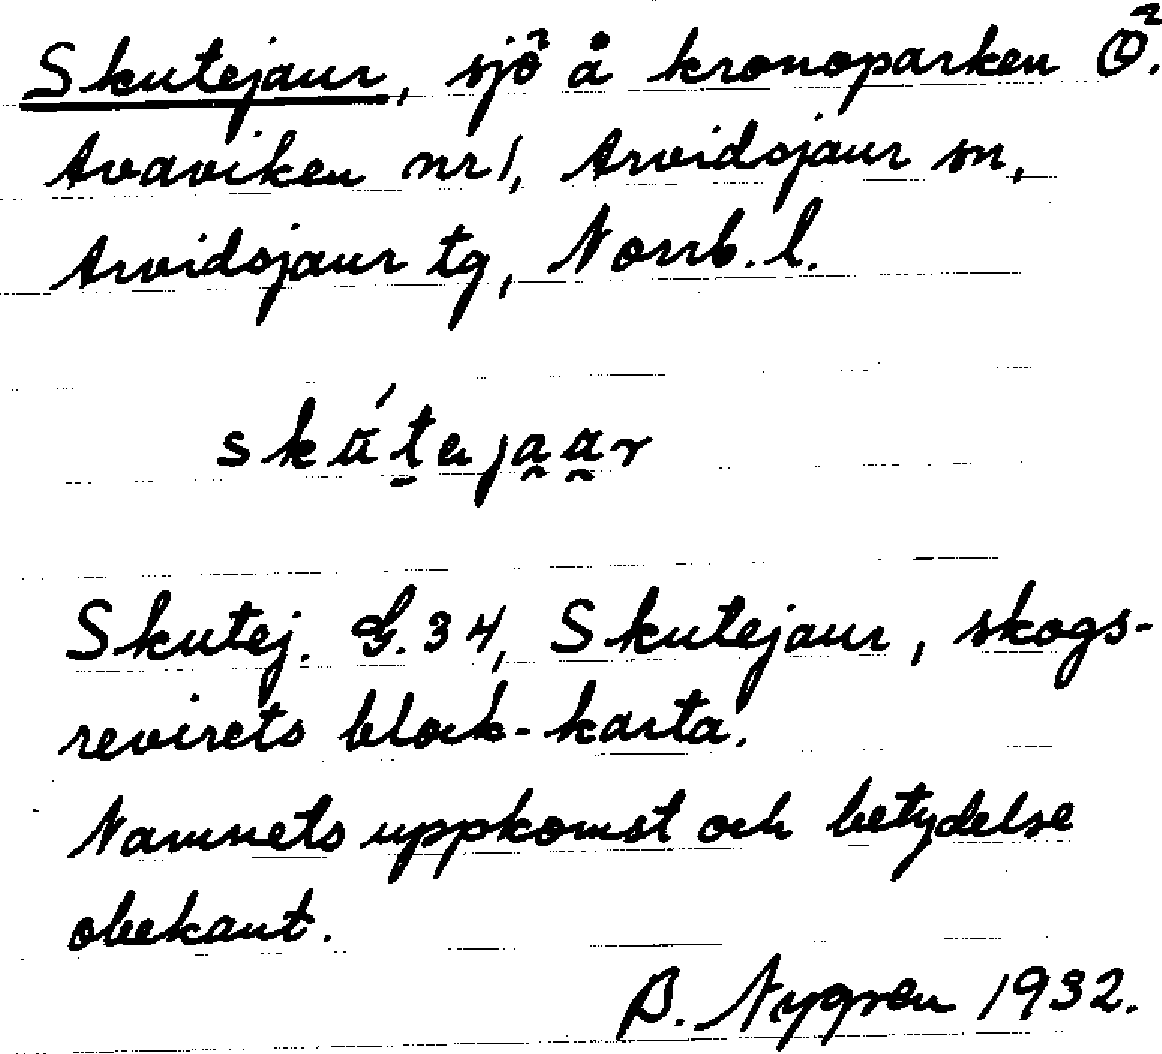 Skutejaur, sjö å kronoparken Ö.
Avaviken nr 1, Arvidsjaur sn,
Arvidsjaur tg, Norrb. l.
Skutej. G.34, Skutejaur, skogs-
revirets block-karta.
Namnets uppkomst och betydelse
obekant.
B. Nygren 1932.